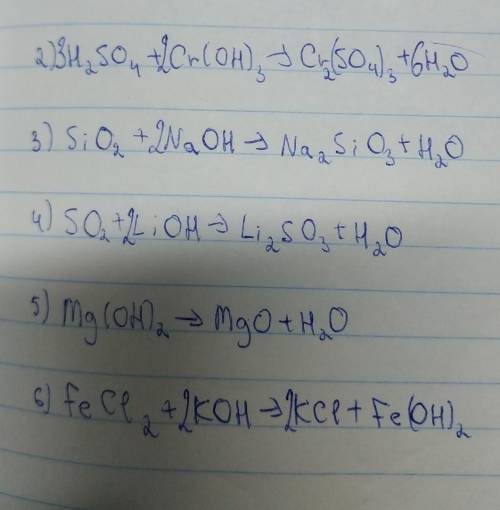 2) 3H₂SO₄ + 2Cr(OH)₃ → Cr₂(SO₄)₃ + 6H₂O
3) SiO₂ + 2NaOH → Na₂SiO₃ + H₂O
4) SO₂ + 2LiOH → Li₂SO₃ + H₂O
5) Mg(OH)₂ → MgO + H₂O
6) FeCl₂ + 2KOH → 2KCl + Fe(OH)₂